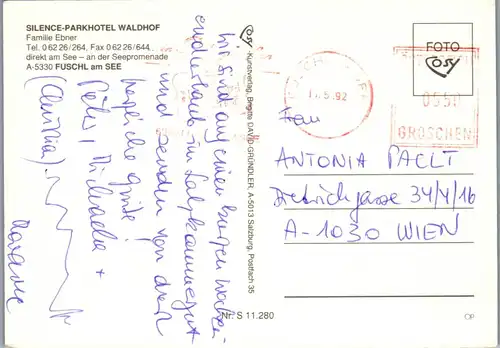 SILENCE-PARKHOTEL WALDHOF
Familie Ebner
Tel. 0 62 26 / 264, Fax 0 62 26 / 644
direkt am See – an der Seepromenade
A-5330 FUSCHL am SEE
Wir sind auf einem kurzen Wochen-
endurlaub im Salzkammergut
und senden von dort
herzliche Grüße
Peter, Michaela +
Christina)
Cosy -Kunstverlag, Brigitte DAVID-GRÜNDLER, A-5013 Salzburg, Postfach 35
FOTO
Cosy
.5.92
0550
GROSCHEN
Frau
ANTONIA PACLT
Dietrichgasse 34/4/16
A-1030 WIEN
Nr. S 11.280